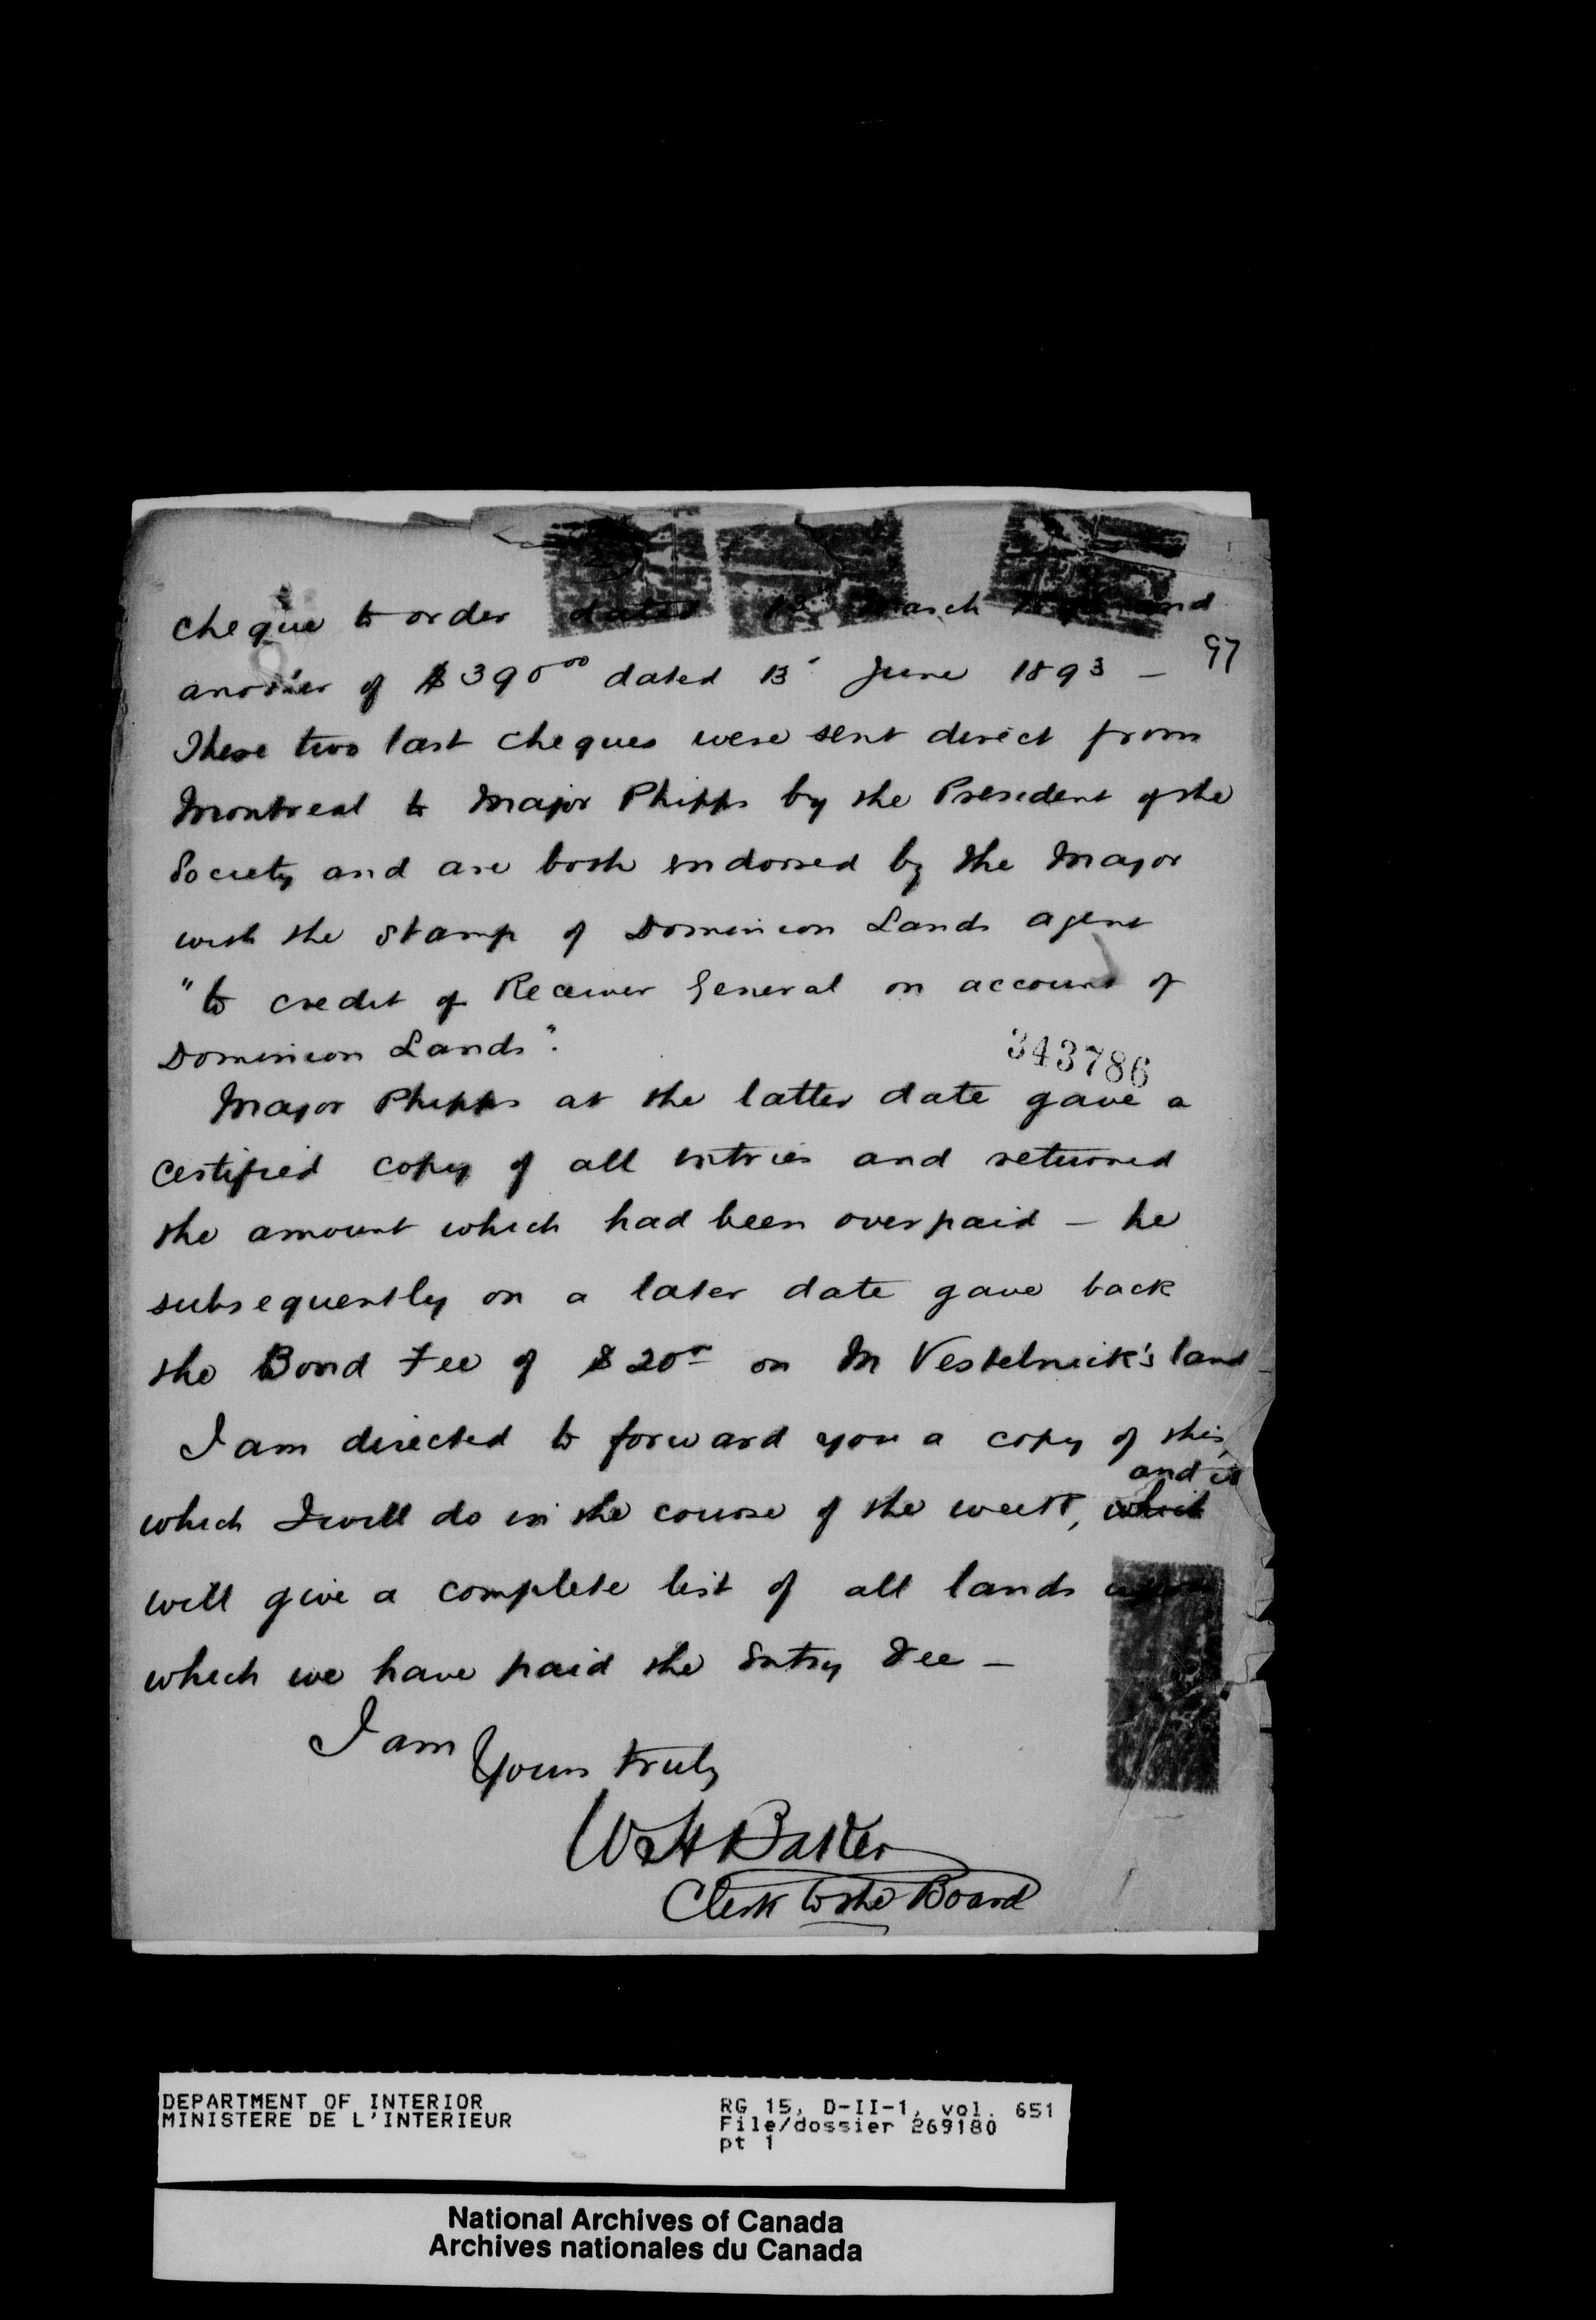 cheque to order dated 13 March and
97
another of $390 00 dated 13 June 1893 –
These two last cheques were sent direct from
Montreal to Major Phipps by the President of the
Society and are both endorsed by the Major
with the stamp of Dominion Lands agent
"to credit of Receiver General on account of
Dominion Lands".
343786
Major Phipps at the latter date gave a
certified copy of all entries and returned
the amount which had been overpaid – he
subsequently on a later date gave back
the Bond Fee of $20 on M Vestelneik's land
I am directed to forward you a copy of this,
and it
which I will do in the course of the week, which
will give a complete list of all lands upon
which we have paid the Entry Fee –
I am
Yours truly
W H Baker
Clerk to the Board
DEPARTMENT OF INTERIOR
MINISTERE DE L'INTERIEUR
RG 15, D-II-1, vol. 651
File/dossier 269180
pt 1
National Archives of Canada
Archives nationales du Canada